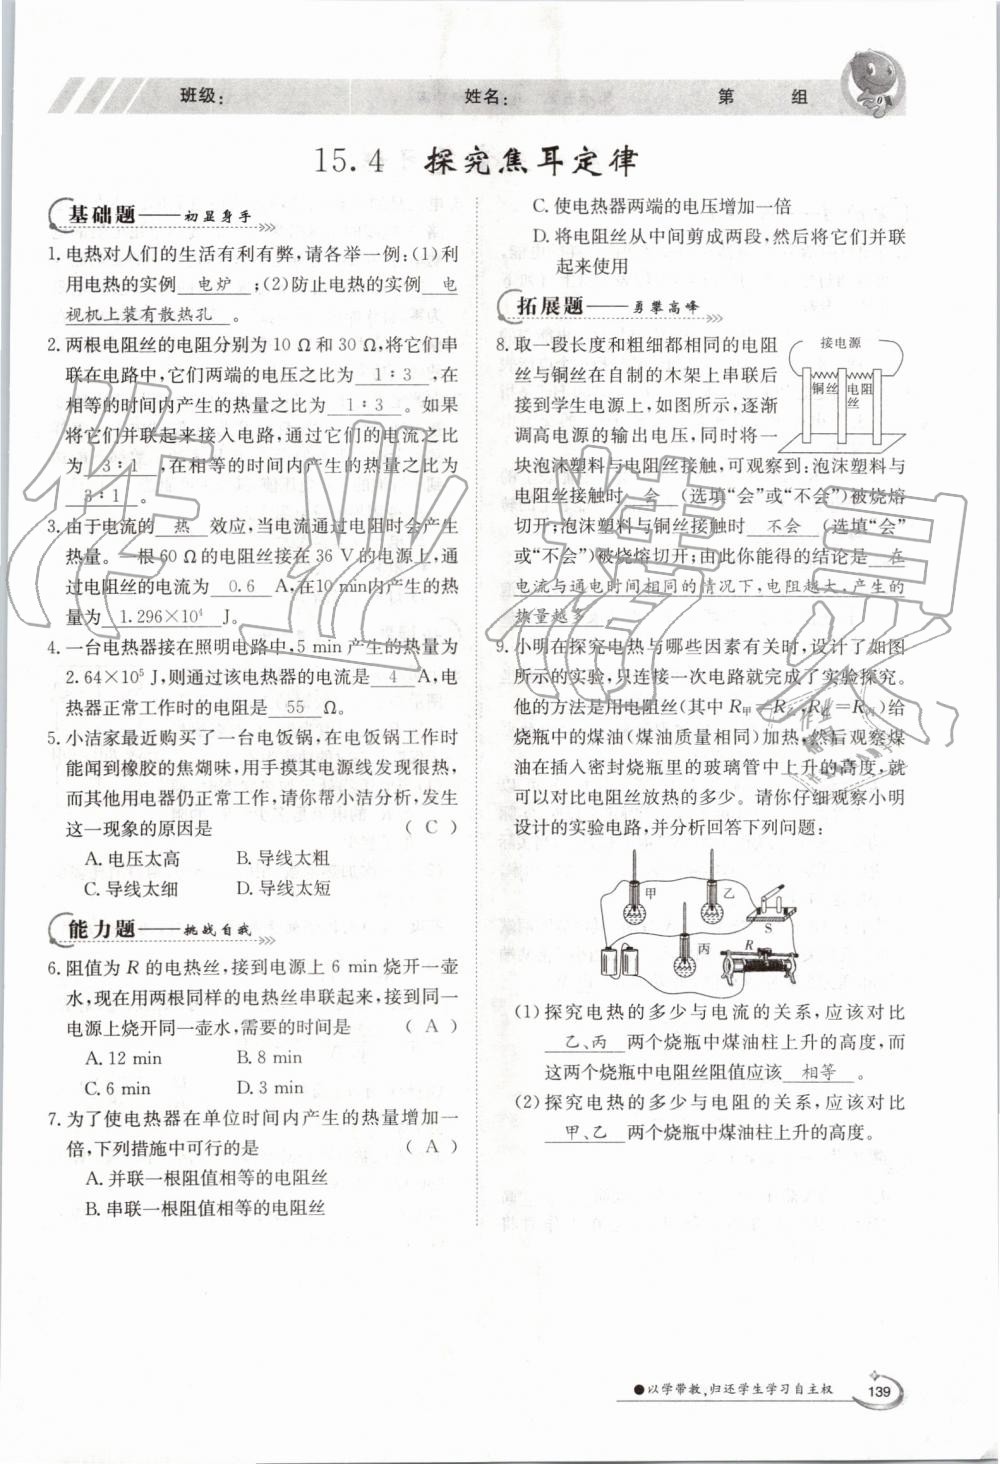 班级： 姓名： 第 组
15.4 探究焦耳定律
基础题——初显身手
1. 电热对人们的生活有利有弊,请各举一例:(1)利
用电热的实例 电炉 ;(2)防止电热的实例 电
视机上装有散热孔 。
2. 两根电阻丝的电阻分别为 10 Ω 和 30 Ω,将它们串
联在电路中,它们两端的电压之比为 1∶3 ,在
相等的时间内产生的热量之比为 1∶3 。如果
将它们并联起来接入电路,通过它们的电流之比
为 3∶1 ,在相等的时间内产生的热量之比为
3∶1 。
3. 由于电流的 热 效应,当电流通过电阻时会产生
热量。一根 60 Ω 的电阻丝接在 36 V 的电源上,通
过电阻丝的电流为 0.6 A,在10 min内产生的热
量为 1.296×10⁴ J。
4. 一台电热器接在照明电路中,5 min 产生的热量为
2.64×10⁵ J,则通过该电热器的电流是 4 A,电
热器正常工作时的电阻是 55 Ω。
5. 小洁家最近购买了一台电饭锅,在电饭锅工作时
能闻到橡胶的焦煳味,用手摸其电源线发现很热,
而其他用电器仍正常工作,请你帮小洁分析,发生
这一现象的原因是 ( C )
A. 电压太高 B. 导线太粗
C. 导线太细 D. 导线太短
能力题——挑战自我
6. 阻值为 R 的电热丝,接到电源上 6 min 烧开一壶
水,现在用两根同样的电热丝串联起来,接到同一
电源上烧开同一壶水,需要的时间是 ( A )
A. 12 min B. 8 min
C. 6 min D. 3 min
7. 为了使电热器在单位时间内产生的热量增加一
倍,下列措施中可行的是 ( A )
A. 并联一根阻值相等的电阻丝
B. 串联一根阻值相等的电阻丝
C. 使电热器两端的电压增加一倍
D. 将电阻丝从中间剪成两段,然后将它们并联
起来使用
拓展题——勇攀高峰
8. 取一段长度和粗细都相同的电阻
丝与铜丝在自制的木架上串联后
接到学生电源上,如图所示,逐渐
调高电源的输出电压,同时将一
接电源
铜丝 电阻
丝
块泡沫塑料与电阻丝接触,可观察到:泡沫塑料与
电阻丝接触时 会 (选填“会”或“不会”)被烧熔
切开;泡沫塑料与铜丝接触时 不会 (选填“会”
或“不会”)被烧熔切开;由此你能得的结论是 在
电流与通电时间相同的情况下,电阻越大,产生的
热量越多
9. 小明在探究电热与哪些因素有关时,设计了如图
所示的实验,只连接一次电路就完成了实验探究。
他的方法是用电阻丝(其中 R甲=R丙,R乙=R丙)给
烧瓶中的煤油(煤油质量相同)加热,然后观察煤
油在插入密封烧瓶里的玻璃管中上升的高度,就
可以对比电阻丝放热的多少。请你仔细观察小明
设计的实验电路,并分析回答下列问题:
甲 乙
S
丙 R
(1) 探究电热的多少与电流的关系,应该对比
乙、丙 两个烧瓶中煤油柱上升的高度,而
这两个烧瓶中电阻丝阻值应该 相等 。
(2) 探究电热的多少与电阻的关系,应该对比
甲、乙 两个烧瓶中煤油柱上升的高度。
作业精灵
●以学带教,归还学生学习自主权
139